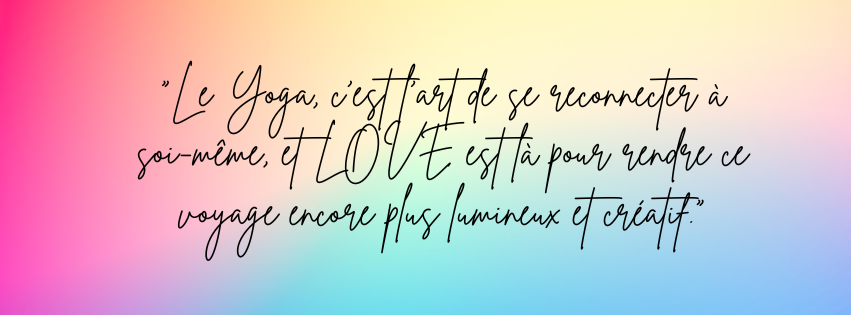 "Le Yoga, c'est l'art de se reconnecter à
soi-même, et LOVE est là pour rendre ce
voyage encore plus lumineux et créatif."